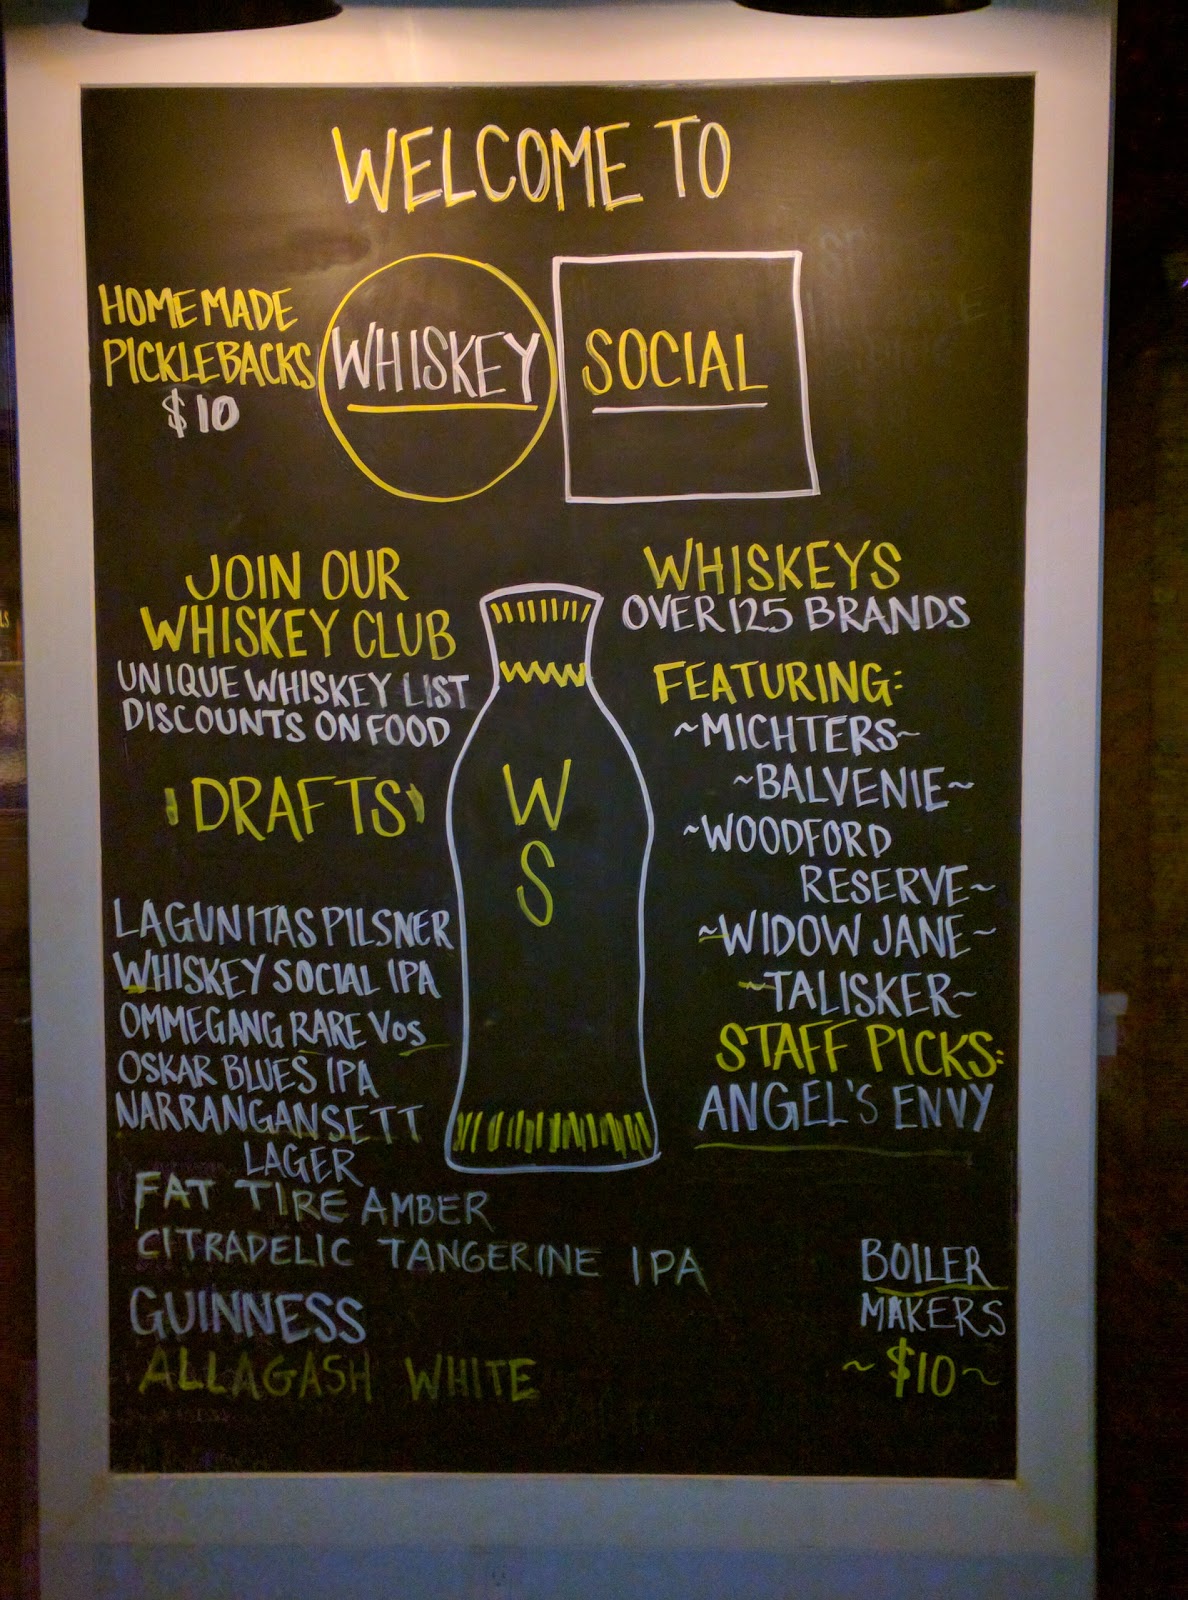 WELCOME TO
HOMEMADE
PICKLEBACKS
$10
WHISKEY
SOCIAL
JOIN OUR
WHISKEY CLUB
UNIQUE WHISKEY LIST
DISCOUNTS ON FOOD
DRAFTS
LAGUNITAS PILSNER
WHISKEY SOCIAL IPA
OMMEGANG RARE VOS
OSKAR BLUES IPA
NARRANGANSETT
LAGER
FAT TIRE AMBER
CITRADELIC TANGERINE IPA
GUINNESS
ALLAGASH WHITE
W
S
WHISKEYS
OVER 125 BRANDS
FEATURING:
~MICHTERS~
~BALVENIE~
~WOODFORD
RESERVE~
~WIDOW JANE~
~TALISKER~
STAFF PICKS:
ANGEL'S ENVY
BOILER
MAKERS
~$10~